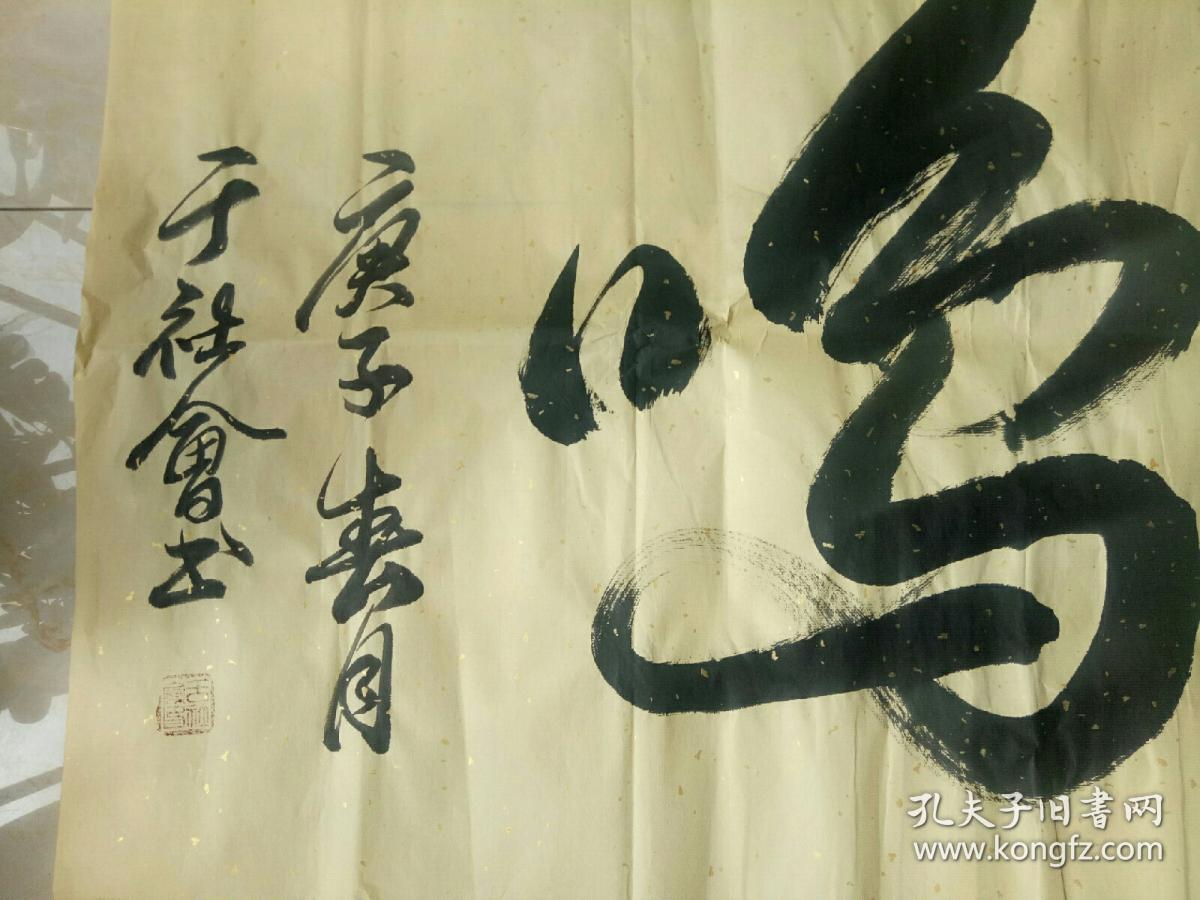 鸣
庚子春月
于社會书
孔夫子旧書网
www.kongfz.com